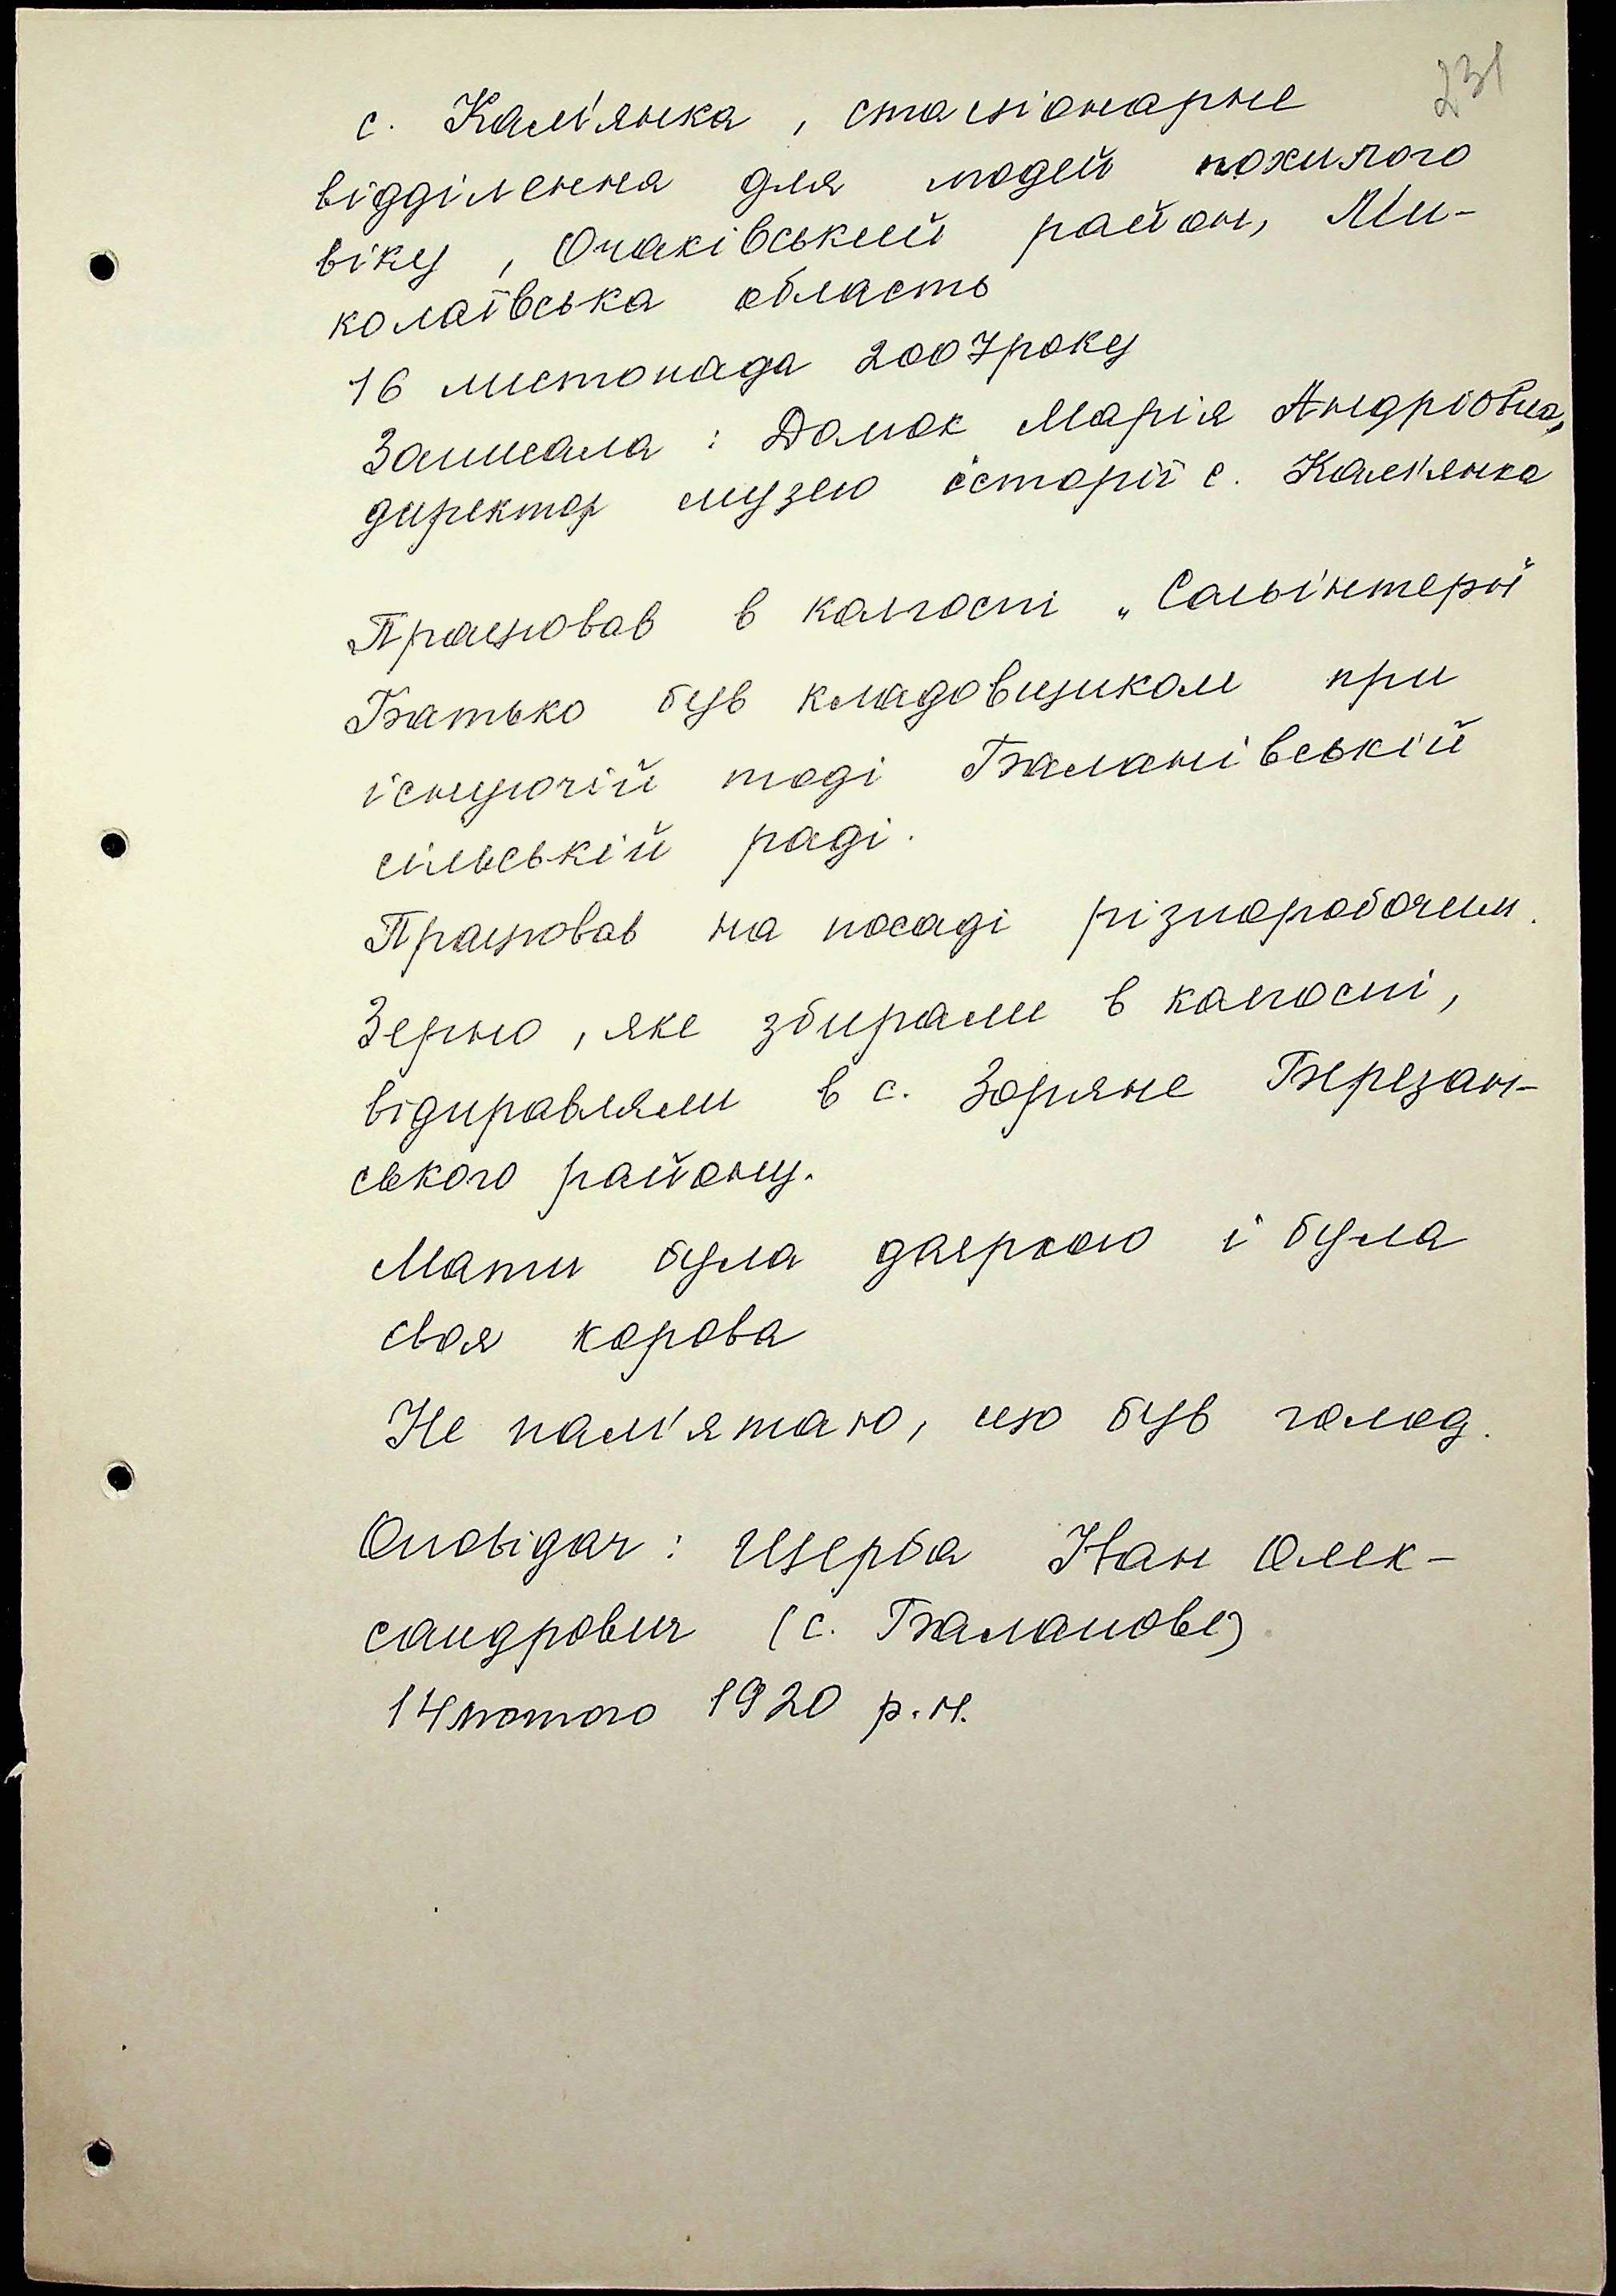 231
с. Кам'янка, стаціонарне
відділення для людей похилого
віку, Очаківський район, Ми-
колаївська область
16 листопада 2007 року
Записала: Домок Марія Андріовна,
директор музею історії с. Кам'янка
Працював в колгоспі „
Батько був кладовщиком при
існуючій тоді Баланівській
сільській раді.
Працював на посаді різноробочим.
Зерно, яке збирали в колгоспі,
відправляли в с. Зоряне Березан-
ського району.
Мати була дояркою і була
своя корова
Не пам'ятаю, що був голод.
Оповідач: Щерба Іван Олек-
сандрович (с. Баланове)
14 лютого 1920 р.н.